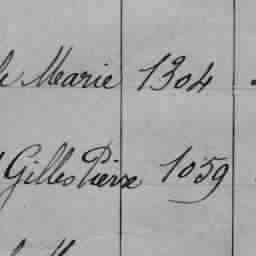 Marie 1304
Gilles Pierre 1059